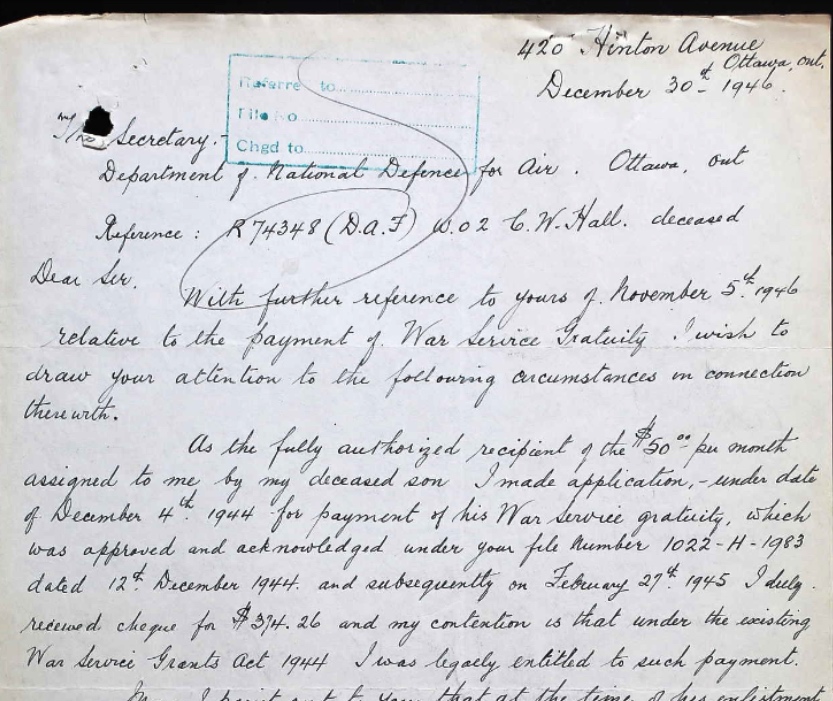 420 Hinton Avenue
Ottawa, ont.
December 30th 1946.
Referre to
File No
Chgd to
The Secretary.-
Department of National Defence for Air. Ottawa, ont
Reference: R74348 (D.A.F) W.O2 C.W. Hall. deceased
Dear Sir.
With further reference to yours of November 5th 1946
relative to the payment of War Service Gratuity I wish to
draw your attention to the following circumstances in connection
therewith.
As the fully authorized recipient of the $50.00 per month
assigned to me by my deceased son I made application,- under date
of December 4th 1944 for payment of his War Service gratuity, which
was approved and acknowledged under your file Number 1022-H-1983
dated 12th December 1944. and subsequently on February 27th 1945 I duly
received cheque for $374.26 and my contention is that under the existing
War Service Grants Act 1944 I was legally entitled to such payment.
I point out to you that at the time of his enlistment